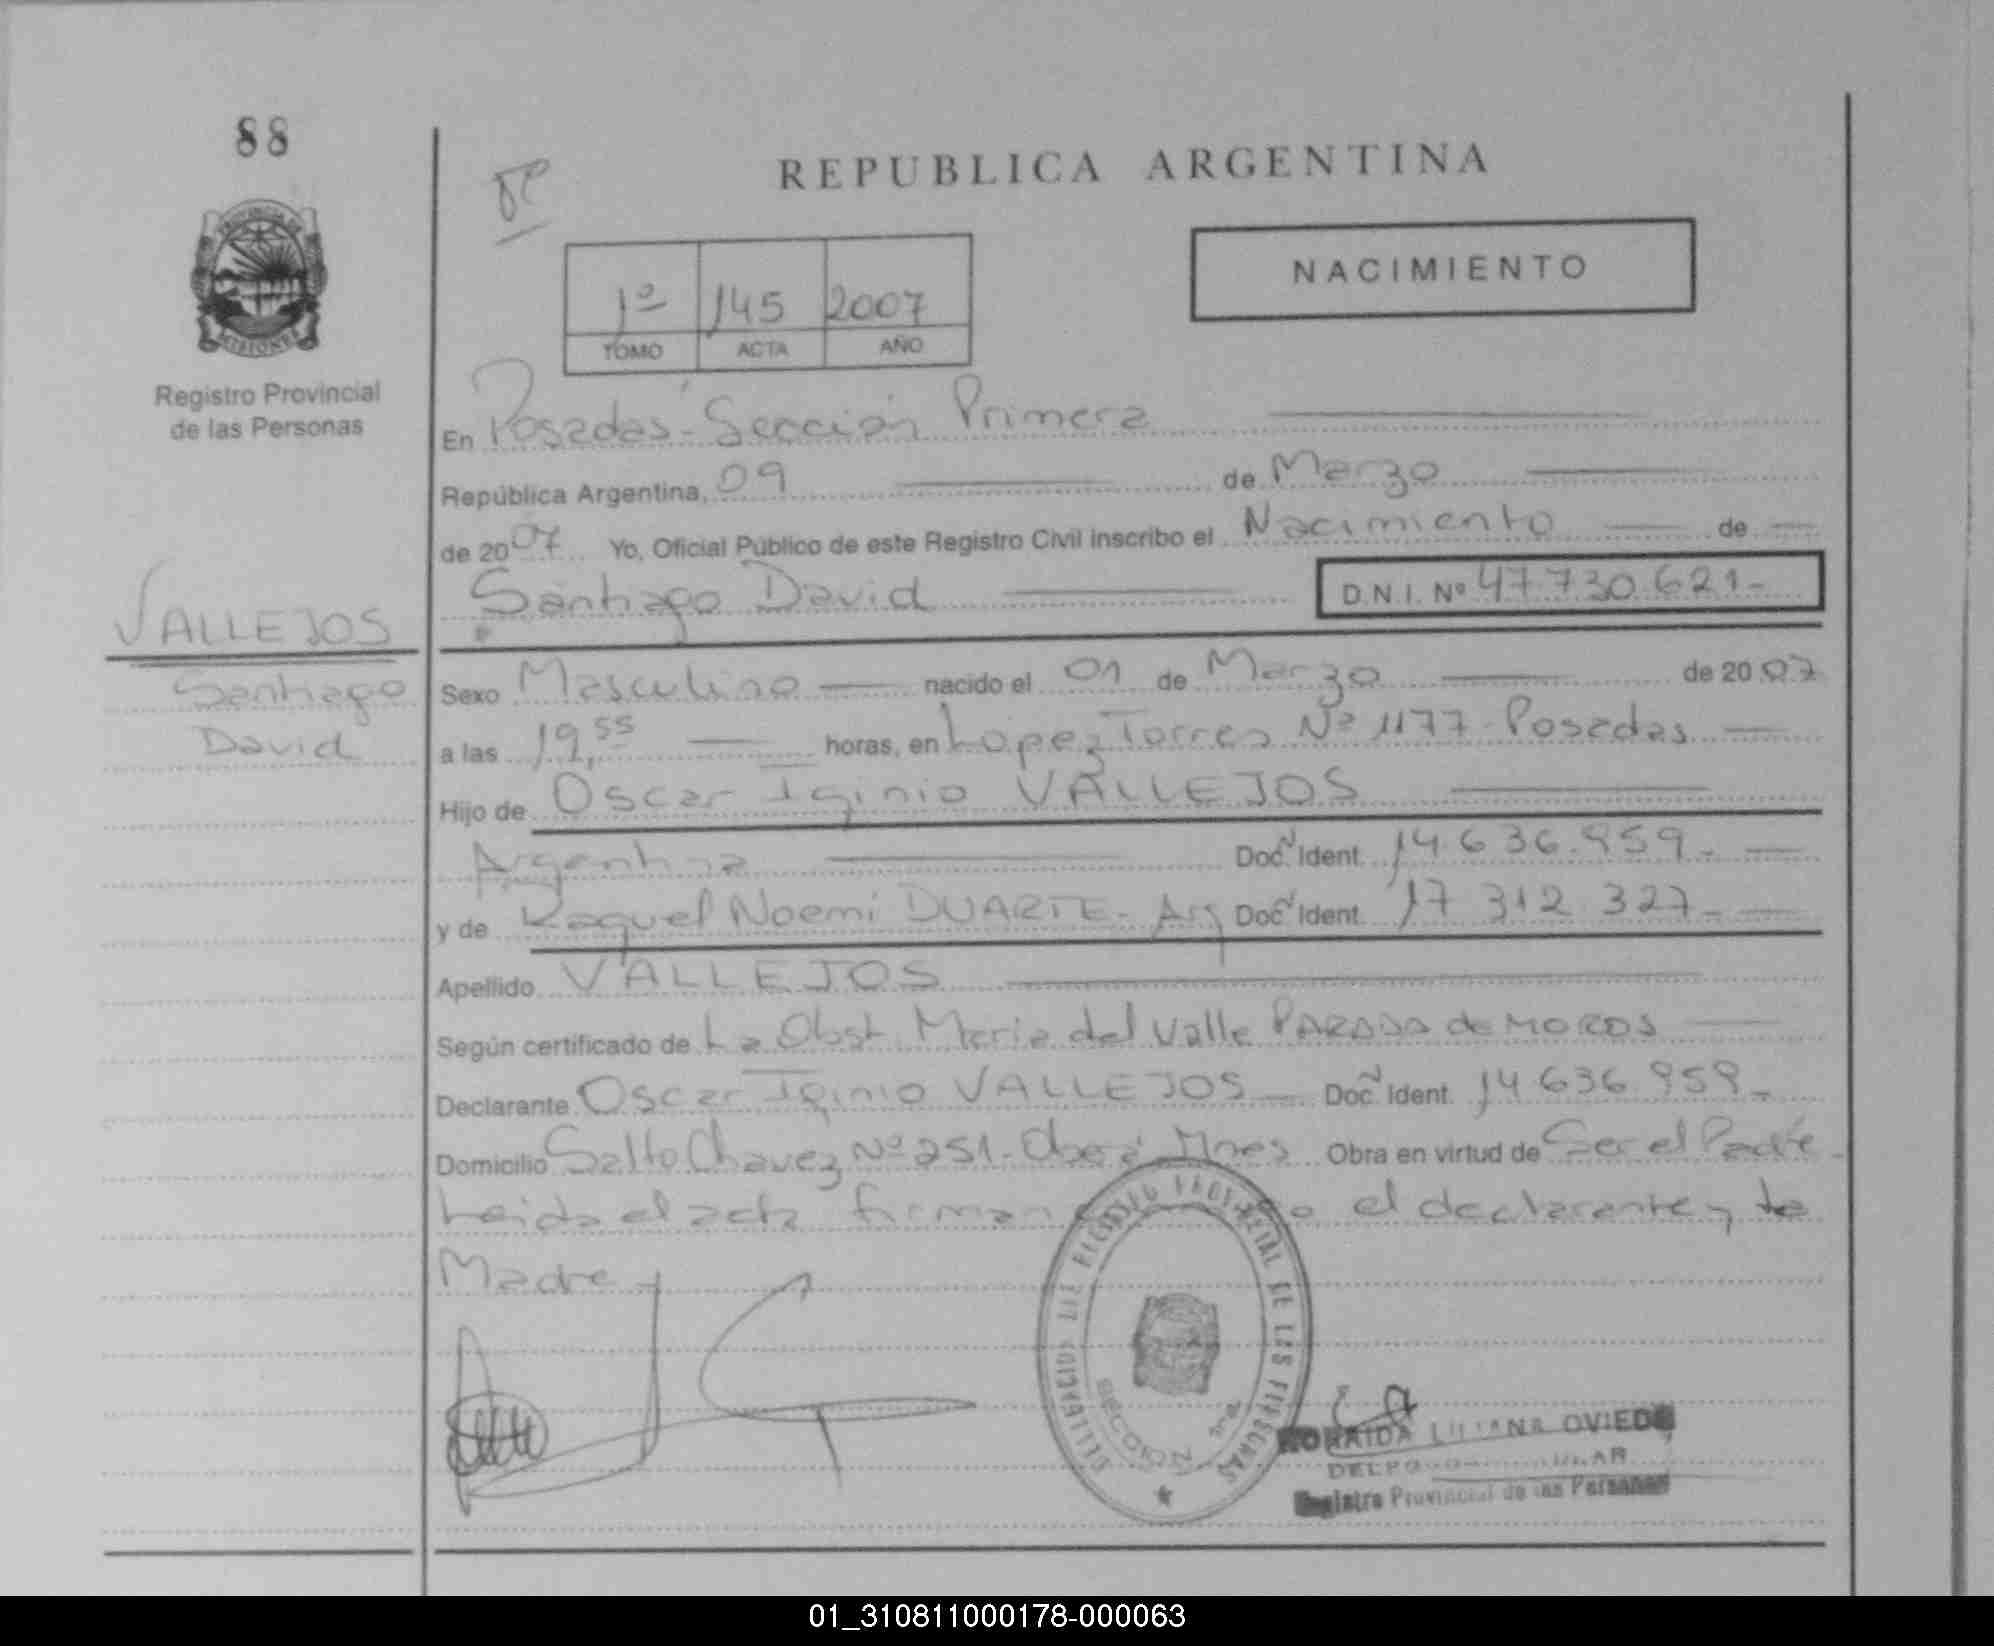 88
REPUBLICA ARGENTINA
PROVINCIA DE
MISIONES
Registro Provincial
de las Personas
NACIMIENTO
1º 145 2007
TOMO ACTA AÑO
En Posadas - Sección Primera
República Argentina, 09 de Marzo
de 2007 Yo, Oficial Público de este Registro Civil inscribo el Nacimiento de
Santiago David D.N.I. Nº 47.730.621-
VALLEJOS
Santiago
David
Sexo Masculino nacido el 01 de Marzo de 2007
a las 19,55 horas, en Lopez Torres Nº 1177 - Posadas
Hijo de Oscar Iginio VALLEJOS
Argentina Doc. Ident. 14.636.959-
y de Raquel Noemi DUARTE - Arg Doc. Ident. 17.312.327-
Apellido VALLEJOS
Según certificado de La Obst. Maria del Valle PARADA de MOROS
Declarante Oscar Iginio VALLEJOS Doc. Ident. 14.636.959-
Domicilio Salto Chavez Nº 251 - Oberá Mnes Obra en virtud de Ser el Padre -
Leida el acta firman el declarante y la
Madre
REGISTRO PROVINCIAL DE LAS PERSONAS
LILIANA OVIEDO
Registro Provincial de las Personas
01_310811000178-000063